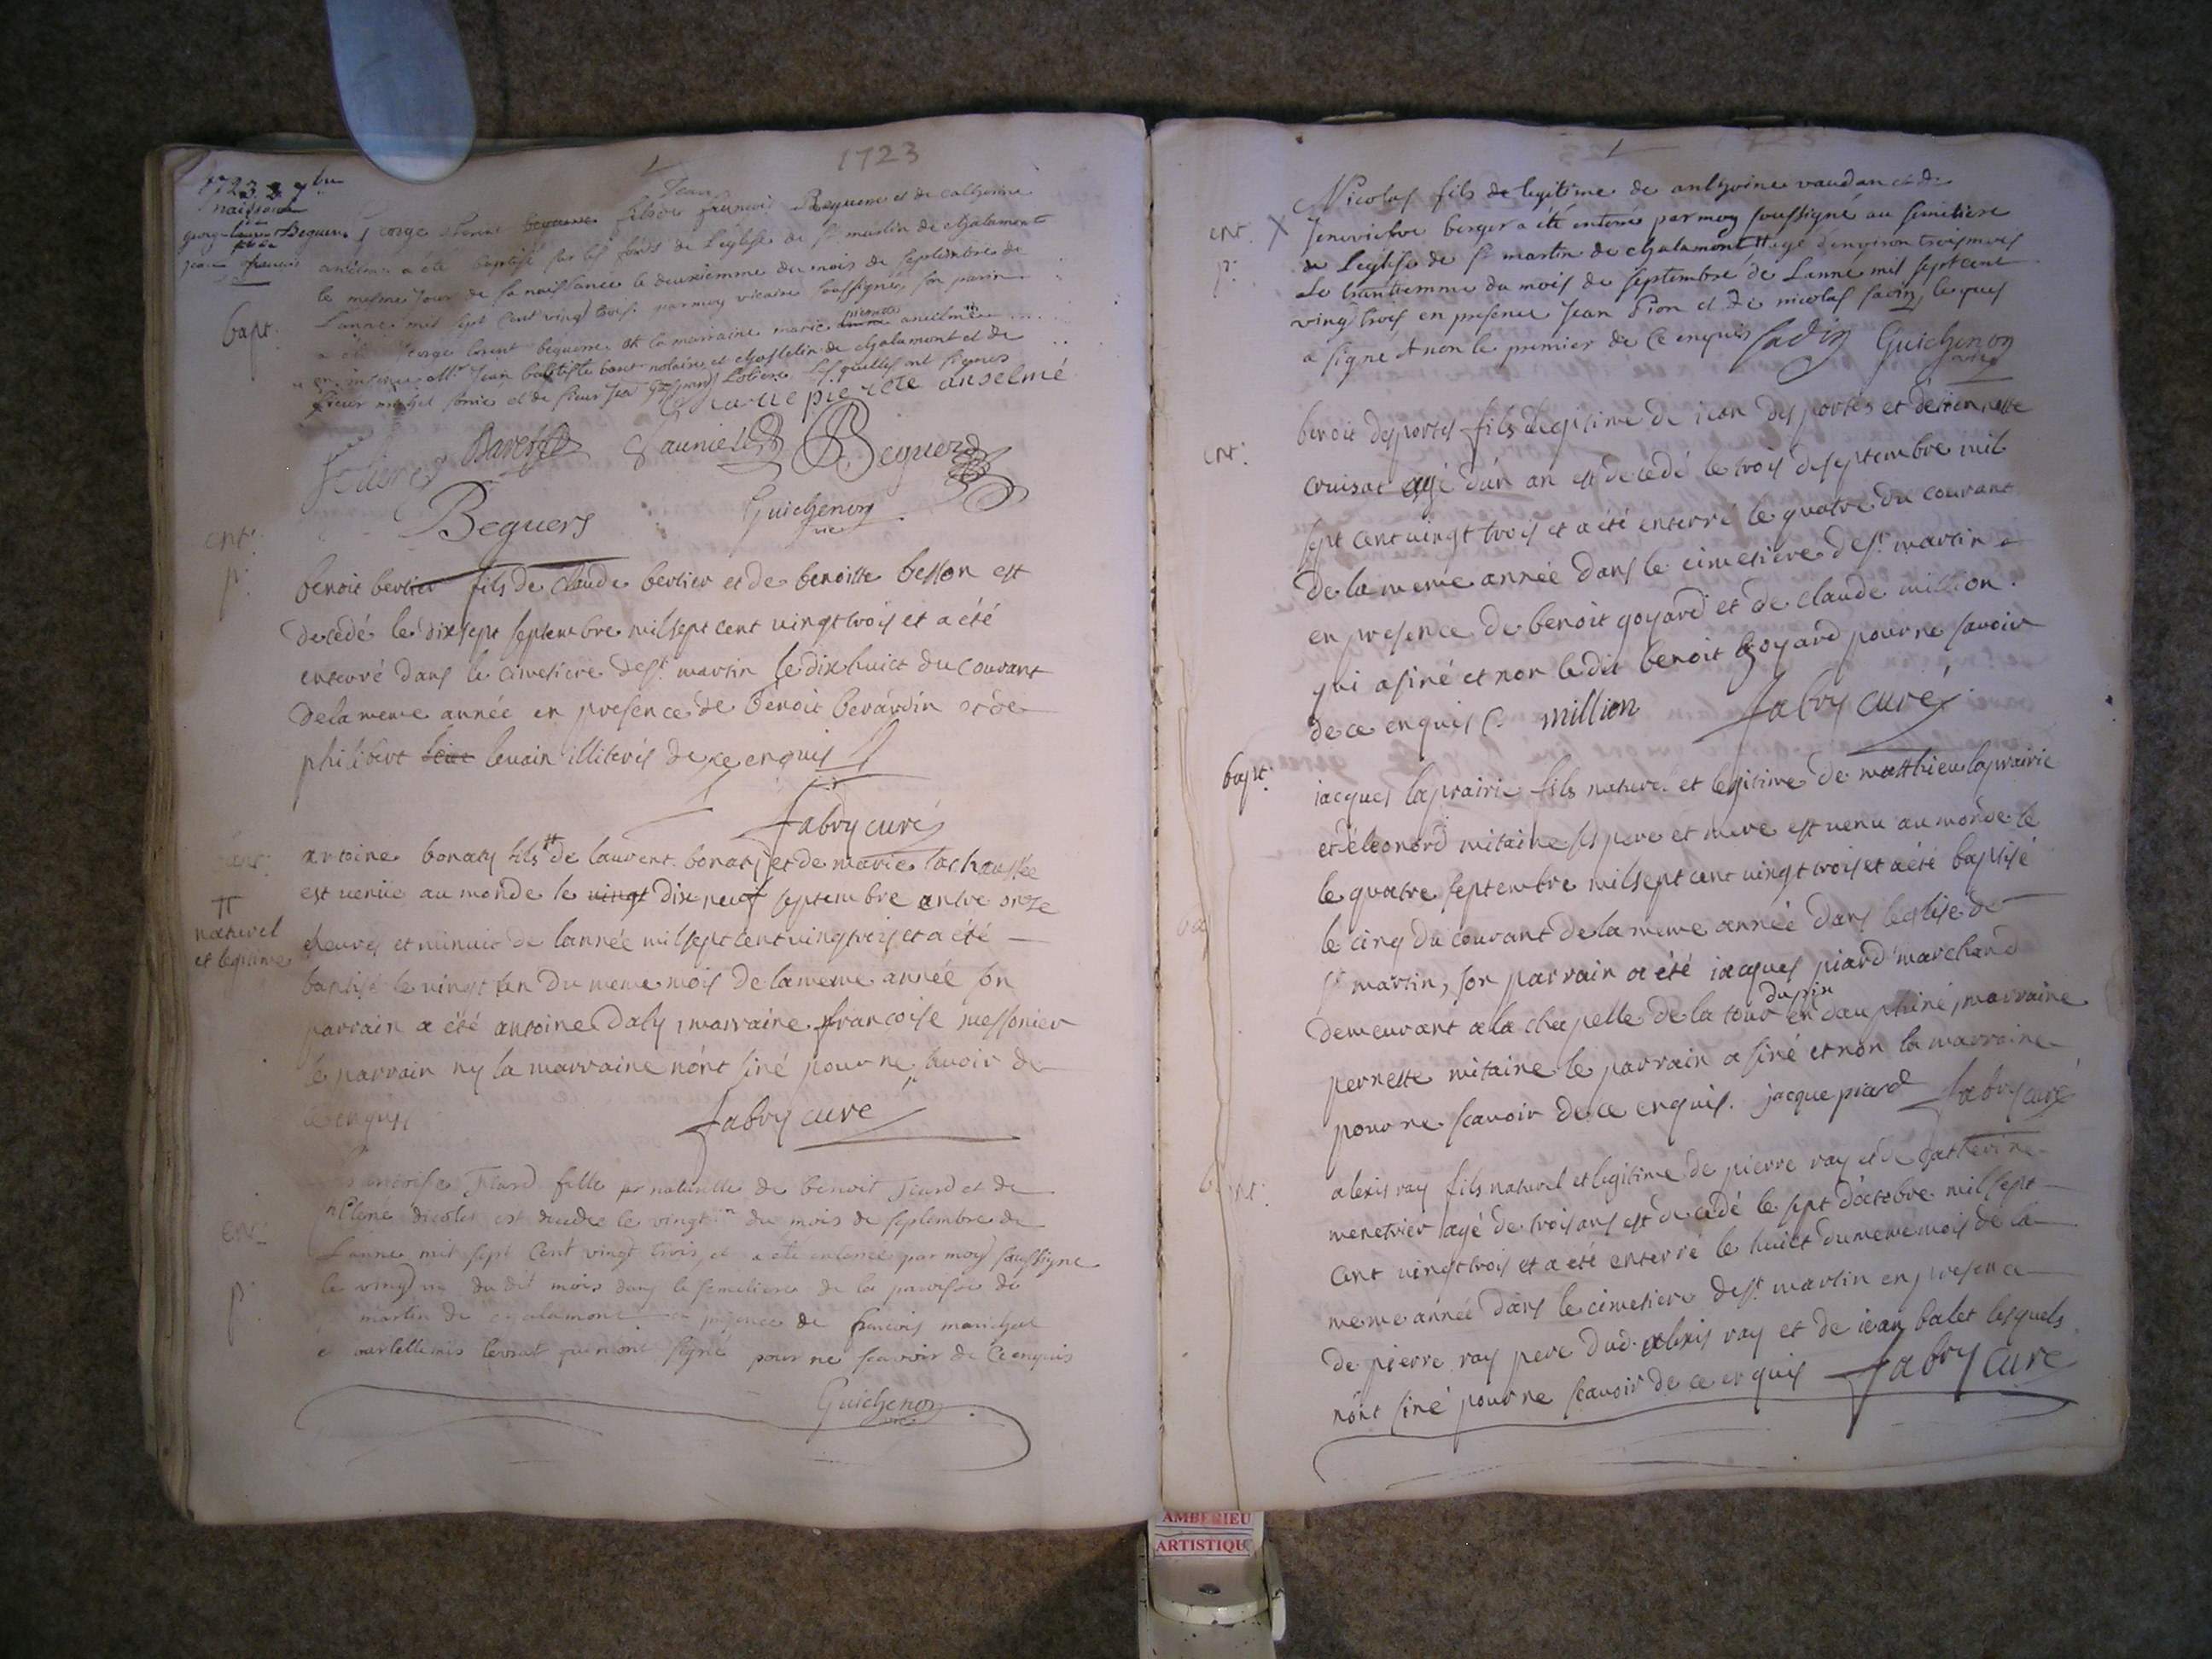 1723
1723 3 7bre
naissance
george laurent Beguere
fils de
jean francois
bapt.
Jean
george lorent fils de francois Beguere et de catherine
anselme a été baptisé sur les fonds de l'eglise de st martin de chalamont
le mesme jour de sa naissance le deuxiemme du mois de septembre de
l'anné mil sept cent vingt trois par moy vicaire soussigné, son parin
a été george lorent beguere et la marraine marie pierrette anselme
en presence Mr Jean baptiste notaire et chastelin de chalamont et de
sieur michel et de sieur les quelles ont signés
marie pierette anselme
Beguere
Beguers
Guichenon
vic
ent.
p.
benoit berlier fils de claude berlier et de benoitte besson est
decedé le dixsept septembre milsept cent vingt trois et a été
enterré dans le cimetiere de st. martin le dix huict du courant
de la meme année en presence de benoit berardin et de
philibert levain illiterés de ce enquis
fabry curé
π
naturel
et legitime
antoine bonaty fils π de laurent bonaty et de marie lachaussée
est venüe au monde le vingt dix neuf septembre entre onze
heures et minuit de lannée milsept cent vingt trois et a été
baptisé le vingt un du meme mois de la meme année son
parrain a été antoine daly, marraine francoise messonier
le parrain ny la marraine nont siné pour ne scavoir de
ce enquis
fabry curé
ent.
p.
fille naturelle de benoit et de
est decedée le vingt du mois de septembre de
l'anné mil sept cent vingt trois, et a été enterrée par moy soussigné
le du dit mois dans le semetiere de la paroisse de
martin de chalamont en presence de francois marechal
et bartellemis qui n'ont signé pour ne scavoir de ce enquis
Guichenon
vic
ent.
p.
X
Nicolas fils de legitime de anthoine vaudan et de
Jeneviefve berger a été enterré par moy soussigné au semetiere
de l'eglise de st martin de chalamont agé d'environ trois mois
le trentiemme du mois de septembre de l'anné mil sept cent
vingt trois en presence Jean Pion et de nicolas sadin, lequel
a signé et non le premier de ce enquis Sadin Guichenon
vic
ent.
benoit desportes fils legitime de jean desportes et detiennette
cruisat agé d'un an est decedé le trois de septembre mil
sept cent vingt trois et a été enterré le quatre du courant
de la meme année dans le cimetiere de st. martin
en presence de benoit goyard et de claude million.
qui a siné et non ledit benoit goyard pour ne savoir
de ce enquis C. million fabry curé
bapt.
jacques laprairie fils naturel et legitime de matthieu laprairie
et déleonord mitaine ses pere et mere est venu au monde le
le quatre septembre milsept cent vingt trois et a été baptisé
le cinq du courant de la meme année dans leglise de
st martin, son parrain a été jacques piard marchand
demeurant a la chapelle de la tour dupin en dauphiné, marraine
pernette mitaine le parrain a siné et non la marraine
pour ne scavoir de ce enquis. jacque piard fabry curé
alexis ray fils naturel et legitime de pierre ray et de catherine
menetrier agé de trois ans est decedé le sept d'octobre milsept
cent vingt trois et a été enterré le huict du meme mois de la
meme année dans le cimetiere de st. martin en presence
de pierre ray pere dud. alexis ray et de jean balet lesquels
n'ont siné pour ne scavoir de ce enquis fabry curé
AMBERIEU
ARTISTIQU